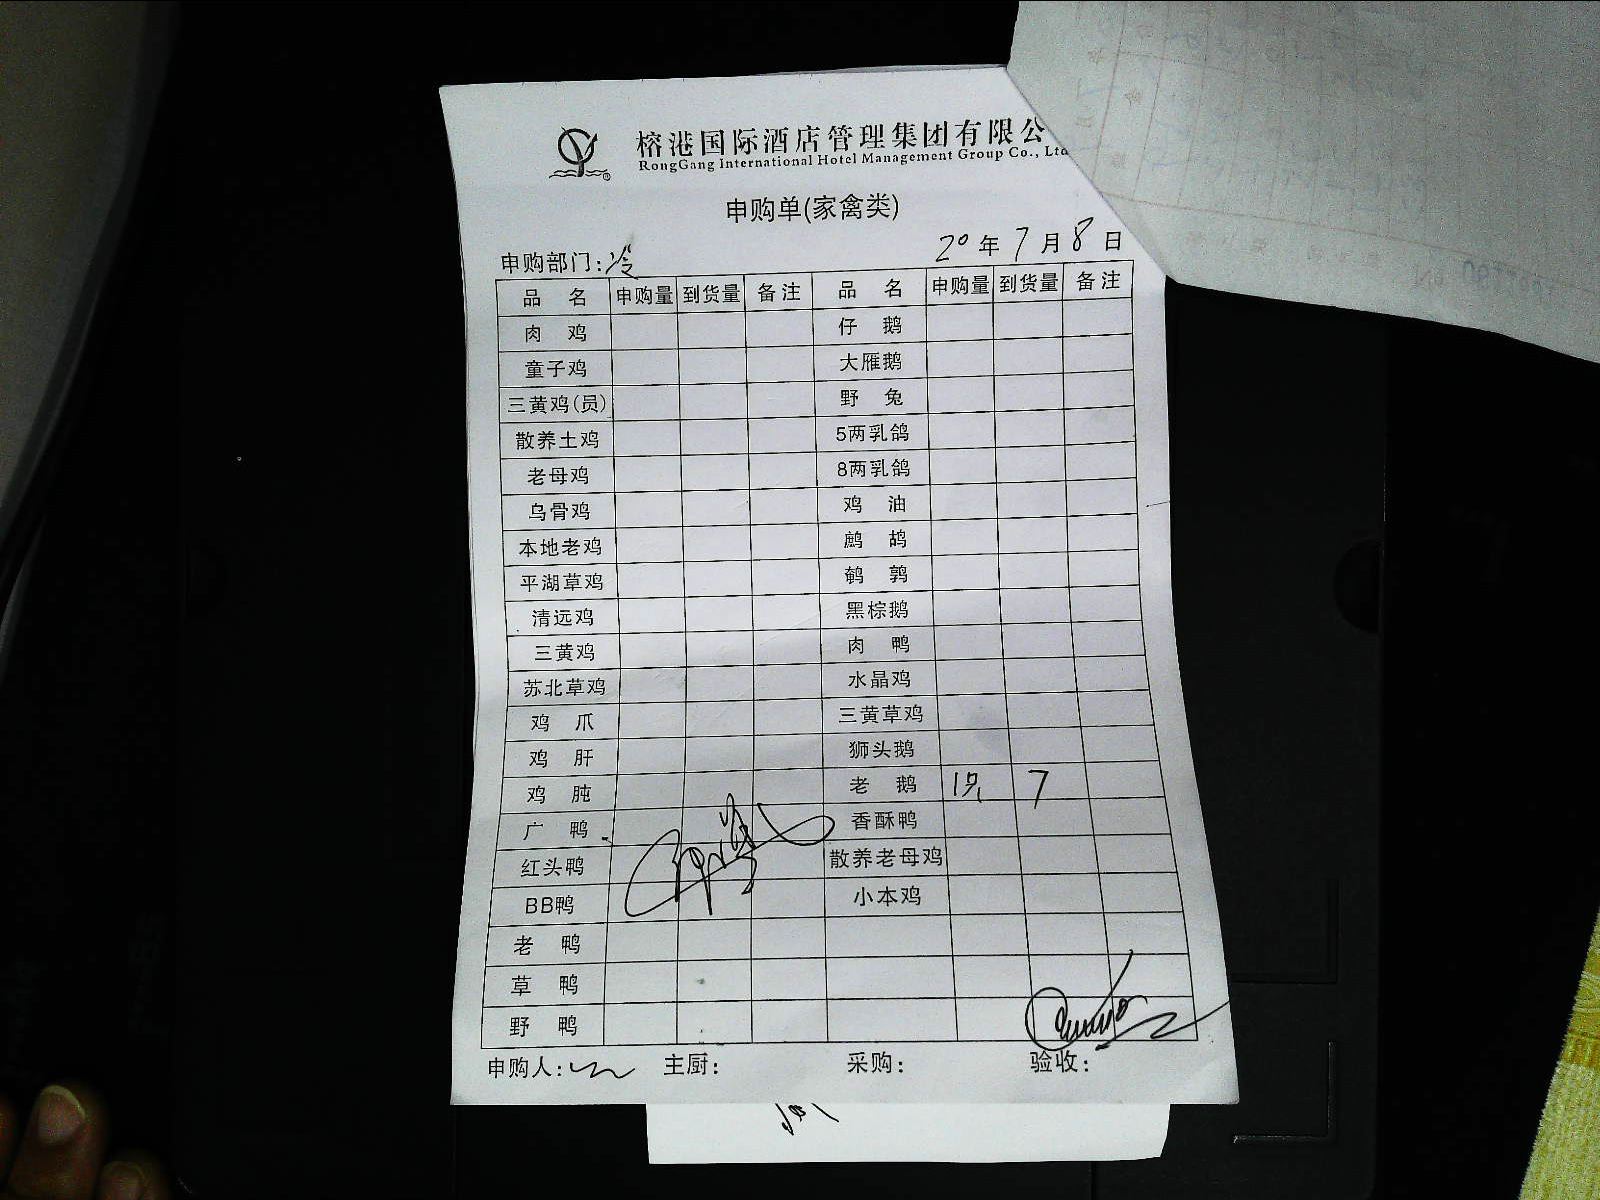 榕港国际酒店管理集团有限公
RongGang International Hotel Management Group Co., Ltd
申购单(家禽类)
申购部门:冷 20年7月8日
品 名 申购量 到货量 备注 品 名 申购量 到货量 备注
肉 鸡 仔 鹅
童子鸡 大雁鹅
三黄鸡(员) 野 兔
散养土鸡 5两乳鸽
老母鸡 8两乳鸽
乌骨鸡 鸡 油
本地老鸡 鹧 鸪
平湖草鸡 鹌 鹑
清远鸡 黑棕鹅
三黄鸡 肉 鸭
苏北草鸡 水晶鸡
鸡 爪 三黄草鸡
鸡 肝 狮头鹅
鸡 肫 老 鹅 1只 7
广 鸭 香酥鸭
红头鸭 散养老母鸡
BB鸭 小本鸡
老 鸭
草 鸭
野 鸭
申购人: 主厨: 采购: 验收: